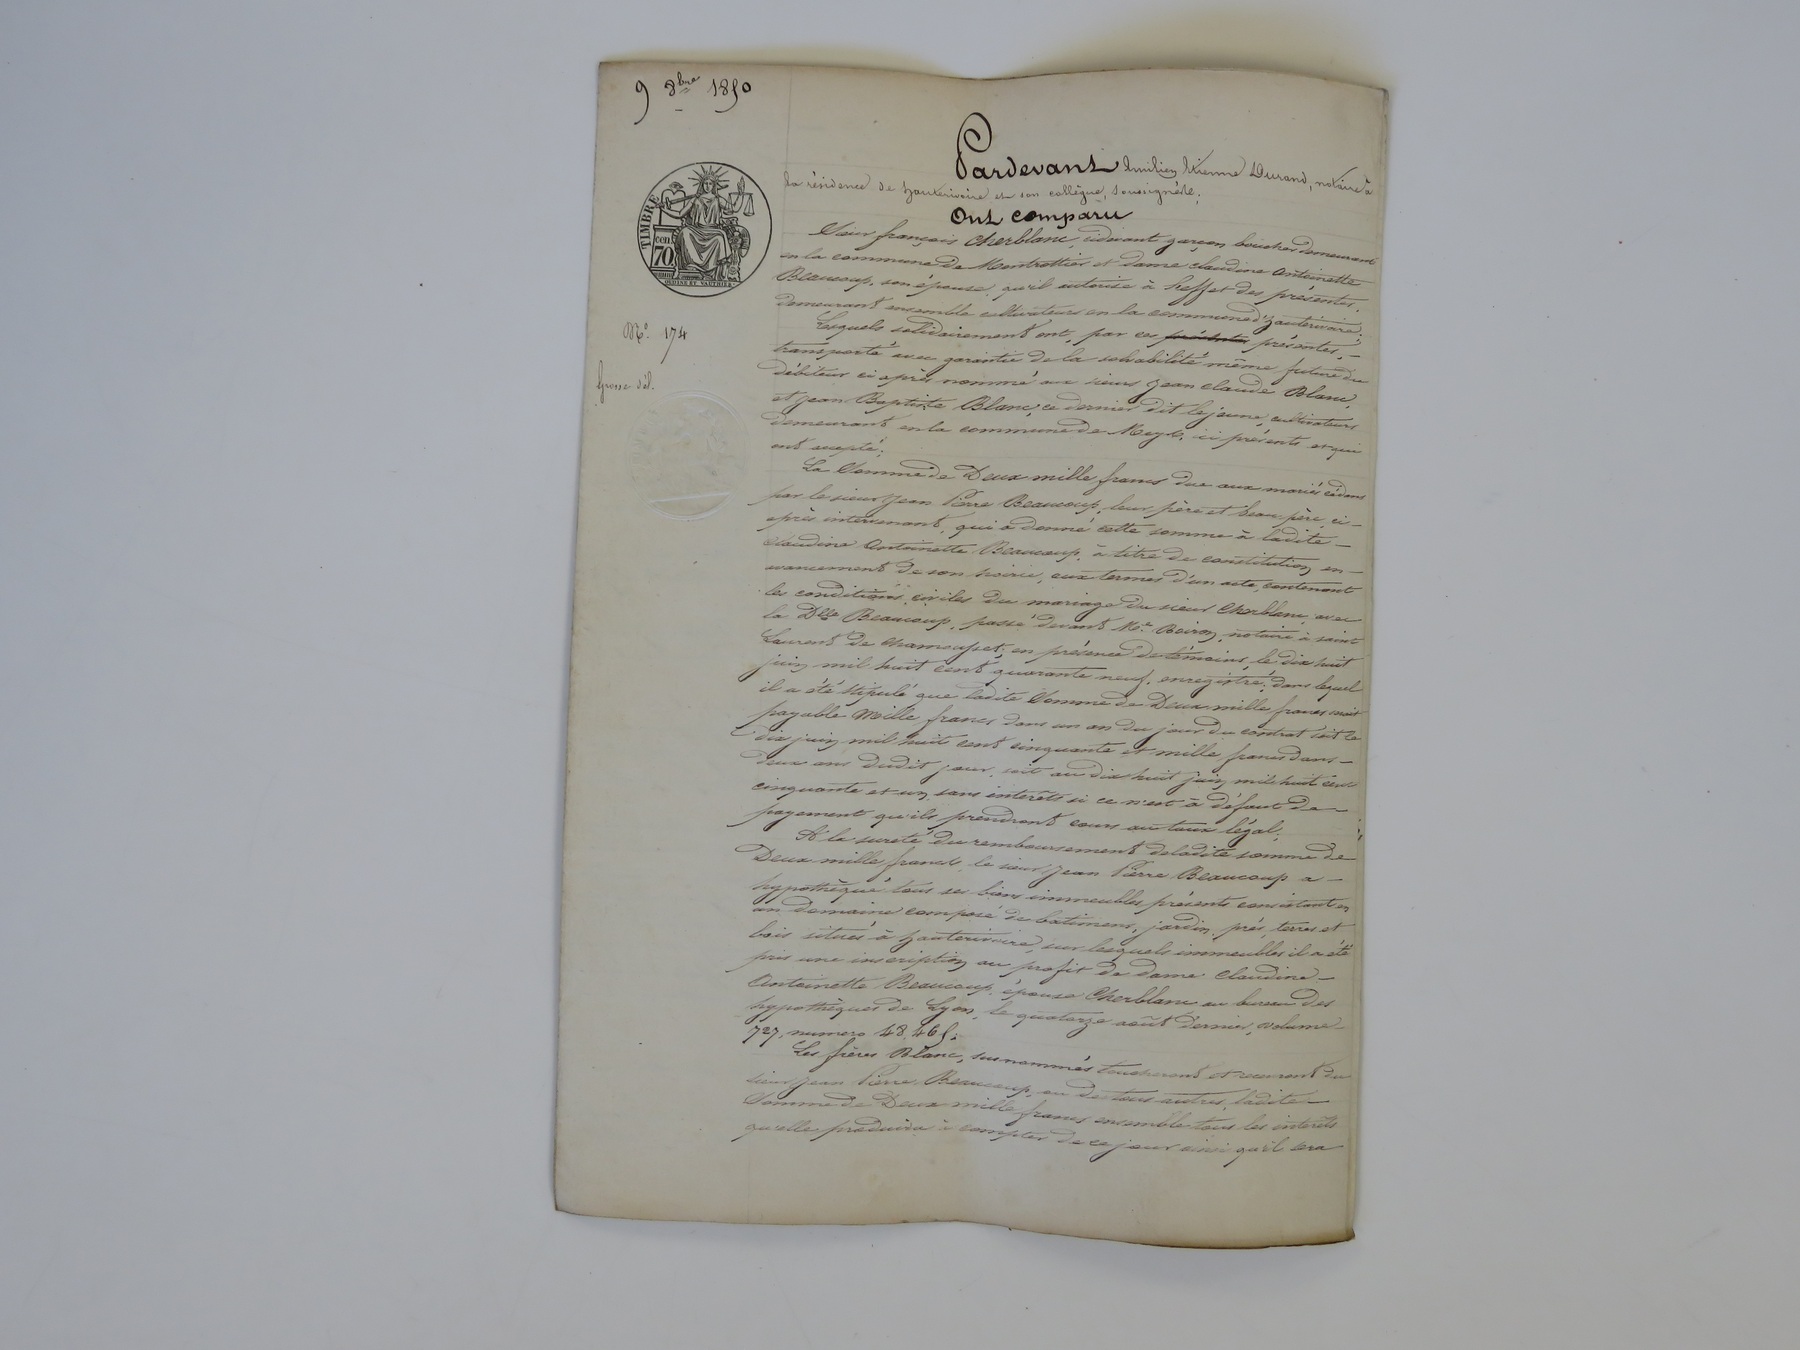 9 8bre 1850
Pardevant Emilien Etienne Durand, notaire à
la résidence de hauterivoire et son collègue, soussignés;
TIMBRE
cen.
70
Ont comparu
Sieur françois Cherblanc, cidevant garçon boucher demeurant
en la commune de Montrottier et dame claudine antoinette
Beaucoup, son épouse qu'il autorise à l'effet des présentes,
demeurant ensemble cultivateurs en la commune d'hauterivoire;
N.º 174
Lesquels solidairement ont, par ces présentes, —
transporté avec garantie de la solvabilité même future du
Grosse dél.
débiteur ci après nommé aux sieurs jean claude Blanc,
et jean Baptiste Blanc, ce dernier dit le jeune, cultivateurs
demeurant en la commune de Meys, ici présents et qui
ont accepté;
La Somme de Deux mille francs due aux mariés cédans
par le sieur jean Pierre Beaucoup, leur père et beau père, ci —
après intervenant, qui a donné cette somme à ladite —
claudine antoinette Beaucoup, à titre de constitution en —
avancement de son hoirie, aux termes d'un acte, contenant
les conditions civiles du mariage du sieur Cherblanc avec
la Dlle Beaucoup, passé devant Me Boiron, notaire à saint
Laurent de chamousset, en présence de témoins, le dix huit
juin mil huit cent quarante neuf, enregistré; dans lequel
il a été stipulé que ladite Somme de Deux mille francs serait
payable Mille francs dans un an du jour du contrat soit le
dix juin mil huit cent cinquante et mille francs dans —
deux ans dudit jour, soit au dix huit juin mil huit cent
cinquante et un, sans intérêts si ce n'est à défaut de —
payement qu'ils prendront cours au taux légal;
A la sureté du remboursement deladite somme de
Deux mille francs, le sieur jean Pierre Beaucoup a —
hypothéqué tous ses biens immeubles présents consistant en
un domaine composé de batimens, jardin, prés, terres et
bois situés à hauterivoire, sur lesquels immeubles il a été
pris une inscription au profit de dame claudine —
antoinette Beaucoup, épouse Cherblanc au bureau des
hypothèques de Lyon, le quatorze août dernier, volume
727, numero 48,465;
Les frères Blanc, susnommés toucheront et recevront du
sieur jean Pierre Beaucoup, ou de tous autres, ladite —
Somme de Deux mille francs ensemble tous les intérêts
qu'elle produira à compter de ce jour ainsi qu'il sera